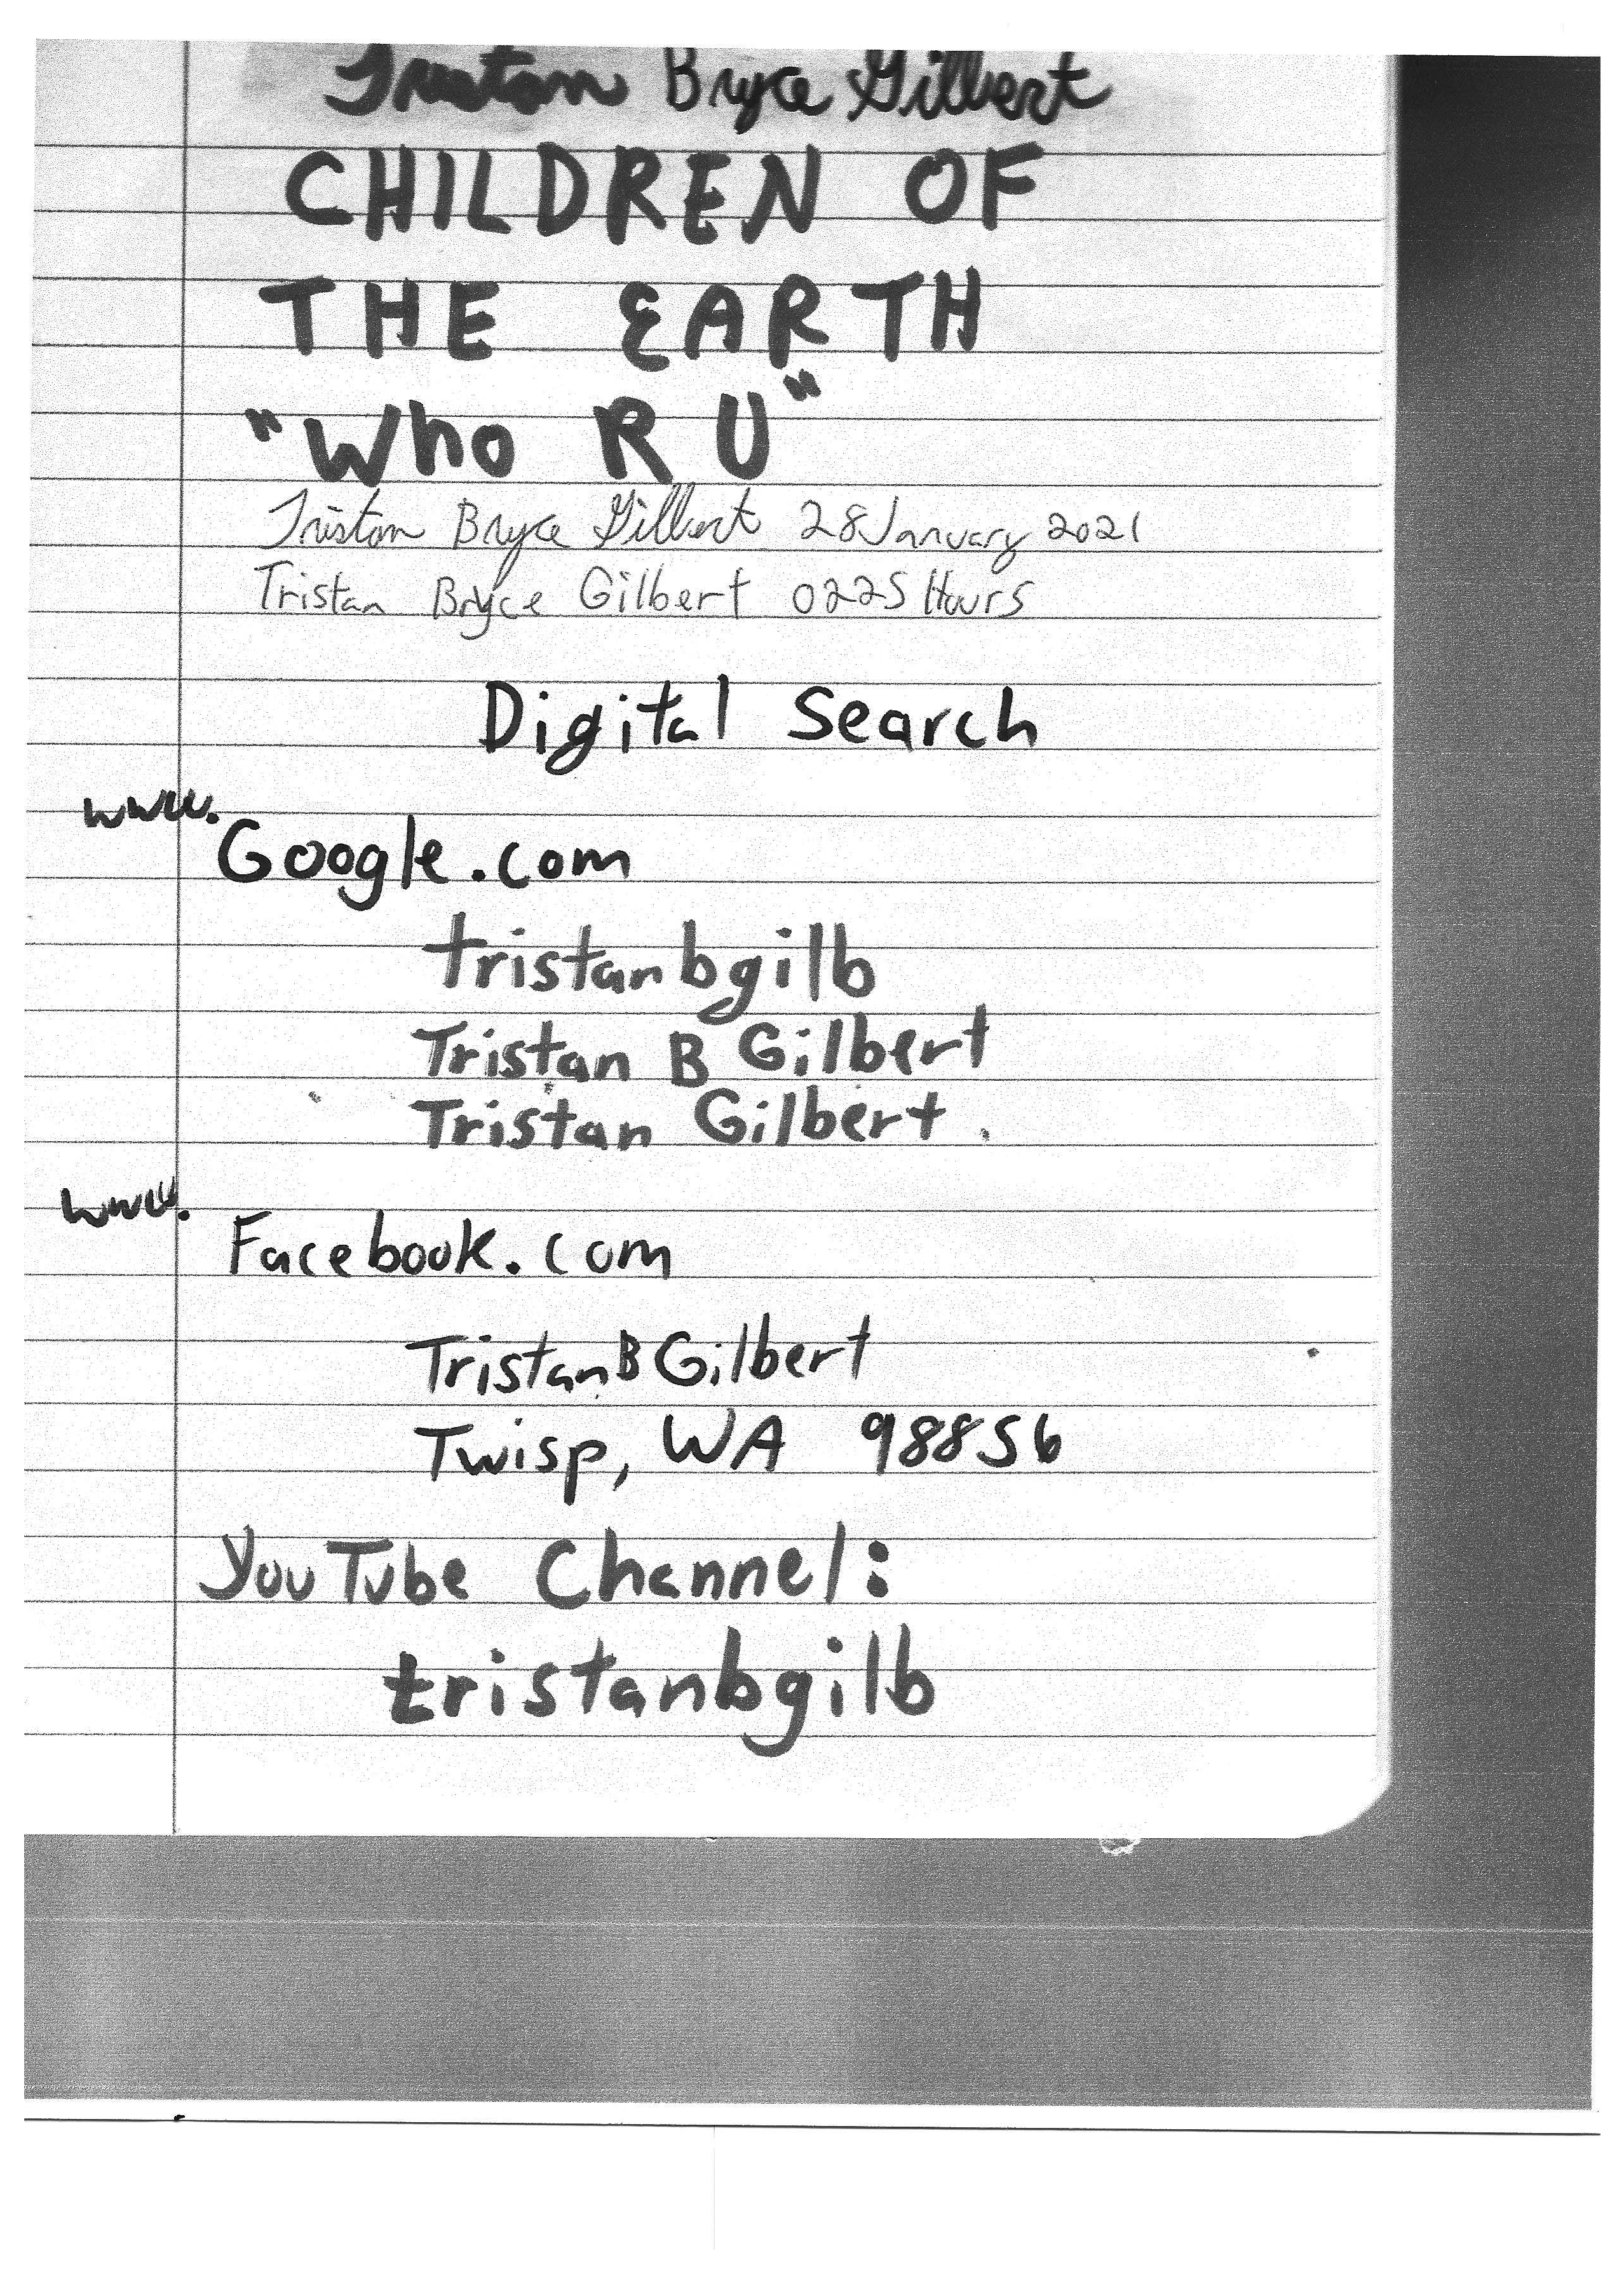 Tristan Bryce Gilbert
CHILDREN OF
THE EARTH
"Who R U"
Tristan Bryce Gilbert 28 January 2021
Tristan Bryce Gilbert 0225 Hours
Digital Search
www.
Google.com
tristanbgilb
Tristan B Gilbert
Tristan Gilbert
www.
Facebook.com
TristanBGilbert
Twisp, WA 98856
YouTube Channel:
tristanbgilb